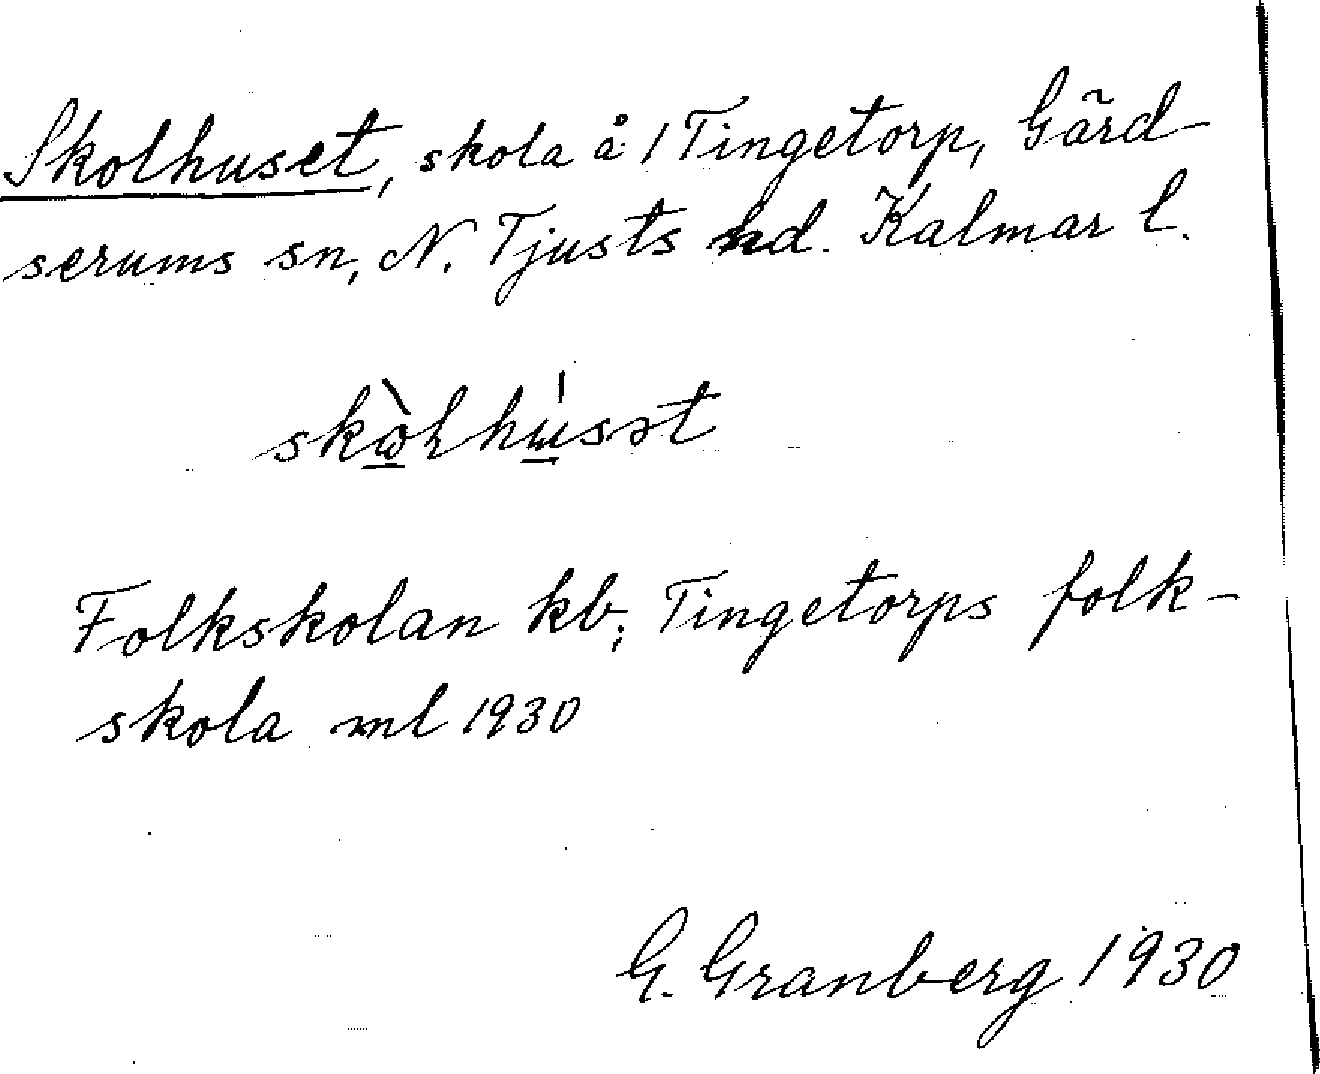 Skolhuset, skola å 1 Tingetorp, Gärd-
serums sn, N. Tjusts hd. Kalmar l.
Folkskolan kb; Tingetorps folk-
skola ml 1930
G. Granberg 1930